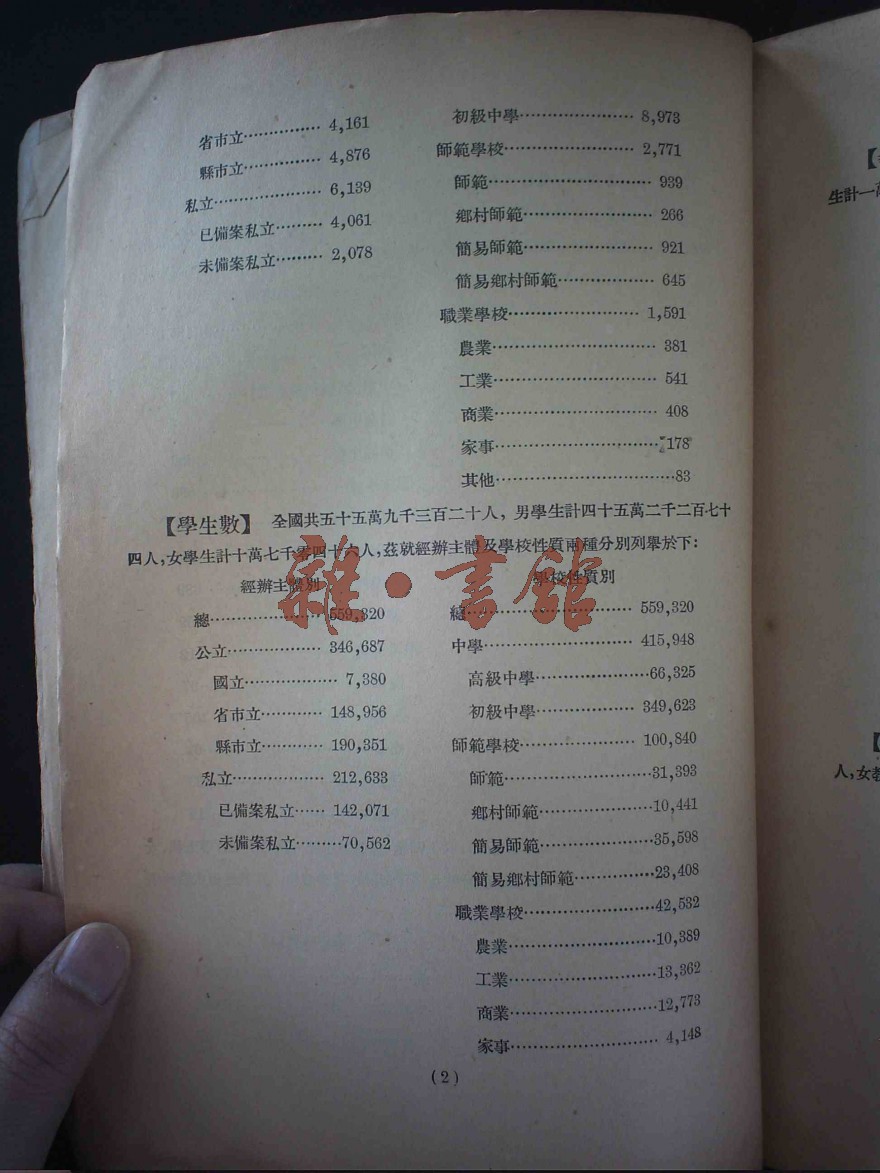 省市立…………… 4,161
縣市立…………… 4,876
私立………………… 6,139
已備案私立……… 4,061
未備案私立……… 2,078
初級中學………………… 8,973
師範學校……………………… 2,771
師範………………………… 939
鄉村師範…………………… 266
簡易師範…………………… 921
簡易鄉村師範……………… 645
職業學校…………………… 1,591
農業………………………… 381
工業………………………… 541
商業………………………… 408
家事…………………………178
其他……………………………83
【學生數】 全國共五十五萬九千三百二十人，男學生計四十五萬二千二百七十
四人，女學生計十萬七千零四十六人，茲就經辦主體及學校性質兩種分別列舉於下：
經辦主體別
總………………… 559,320
公立……………… 346,687
國立……………… 7,380
省市立………… 148,956
縣市立………… 190,351
私立……………… 212,633
已備案私立…… 142,071
未備案私立………70,562
學校性質別
總………………………… 559,320
中學……………………… 415,948
高級中學…………………66,325
初級中學……………… 349,623
師範學校………………… 100,840
師範………………………31,393
鄉村師範…………………10,441
簡易師範…………………35,598
簡易鄉村師範……………23,408
職業學校……………………42,532
農業………………………10,389
工業………………………13,362
商業………………………12,773
家事……………………… 4,148
(2)
雜·書館
【
生計一萬
【
人，女教